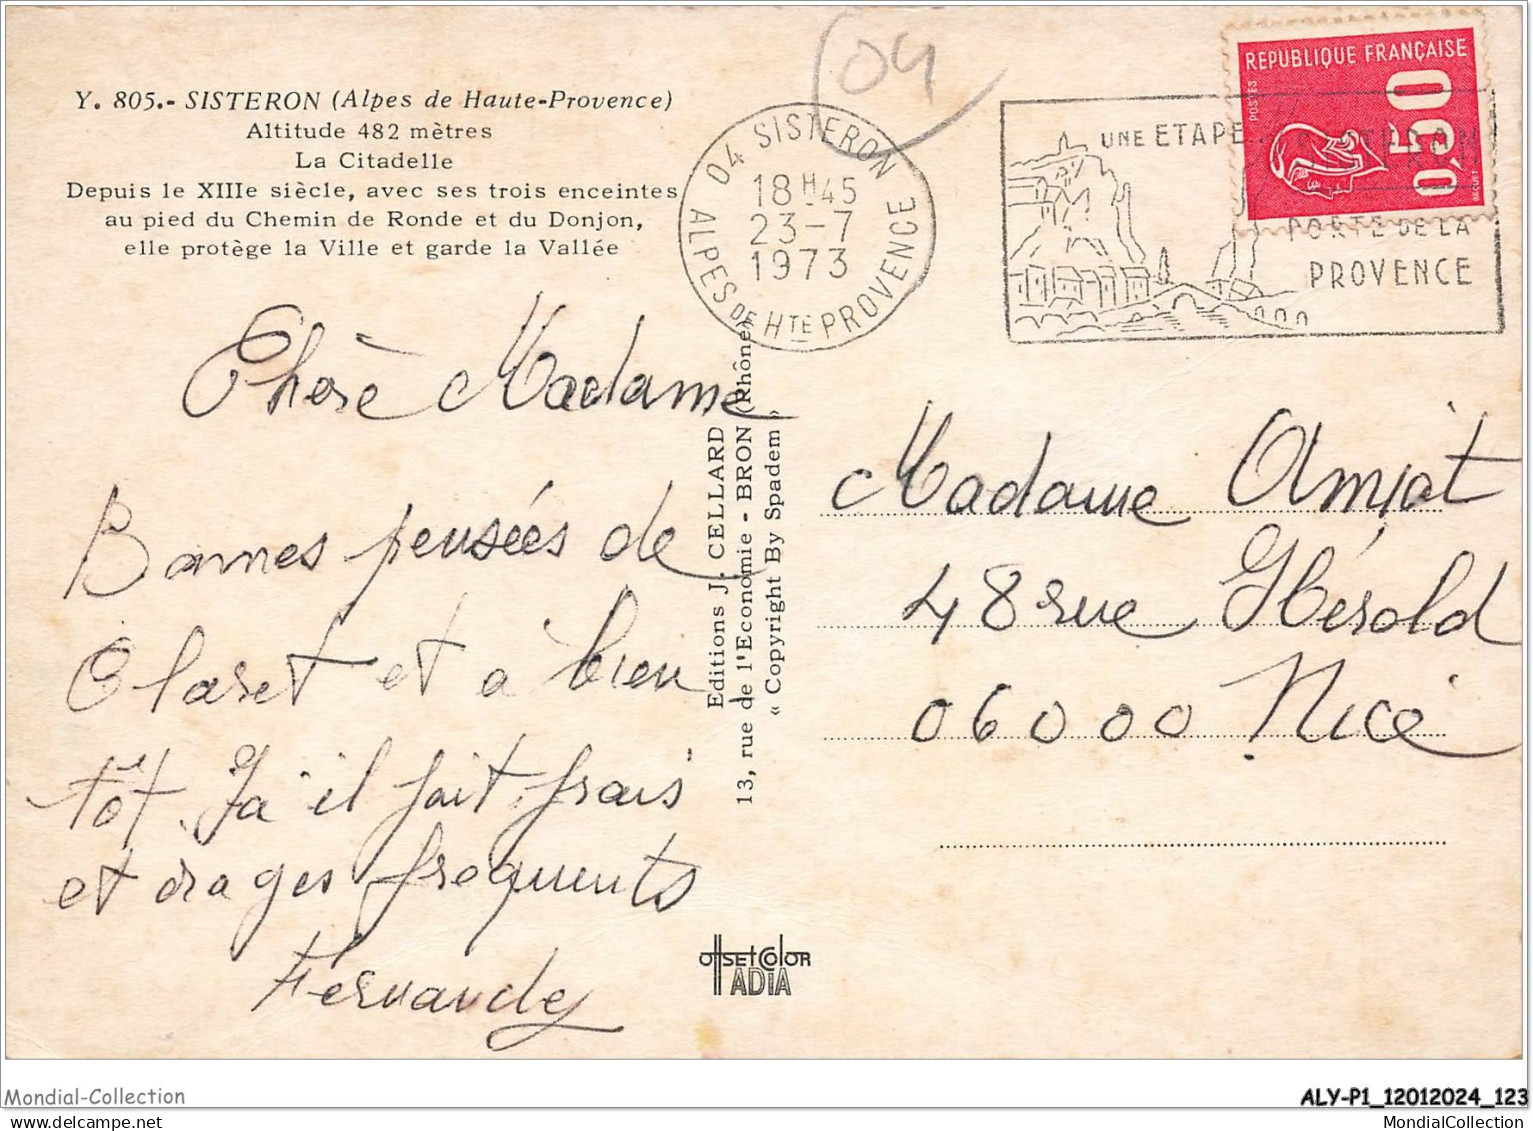 Y. 805.- SISTERON (Alpes de Haute-Provence)
Altitude 482 mètres
La Citadelle
Depuis le XIIIe siècle, avec ses trois enceintes
au pied du Chemin de Ronde et du Donjon,
elle protège la Ville et garde la Vallée
04
04 SISTERON
18H45
23-7
1973
ALPES DE HTE PROVENCE
UNE ETAPE
PORTE DE LA
PROVENCE
REPUBLIQUE FRANÇAISE
POSTES
0,50
BEQUET
Chère Madame
Bonnes pensées de
Claret et à bien
tôt. Ja il fait frais
et orages frequents
Fernande
Editions J. CELLARD
13, rue de l'Economie - BRON (Rhône)
« Copyright By Spadem »
Madame Amiot
48 rue Hérold
06000 Nice
OffsetColor
ADIA
Mondial-Collection
ALY-P1_12012024_123
MondialCollection